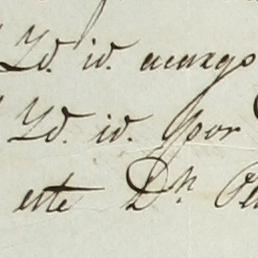 Yd. id. acargo
Yd. id. por
este Dn